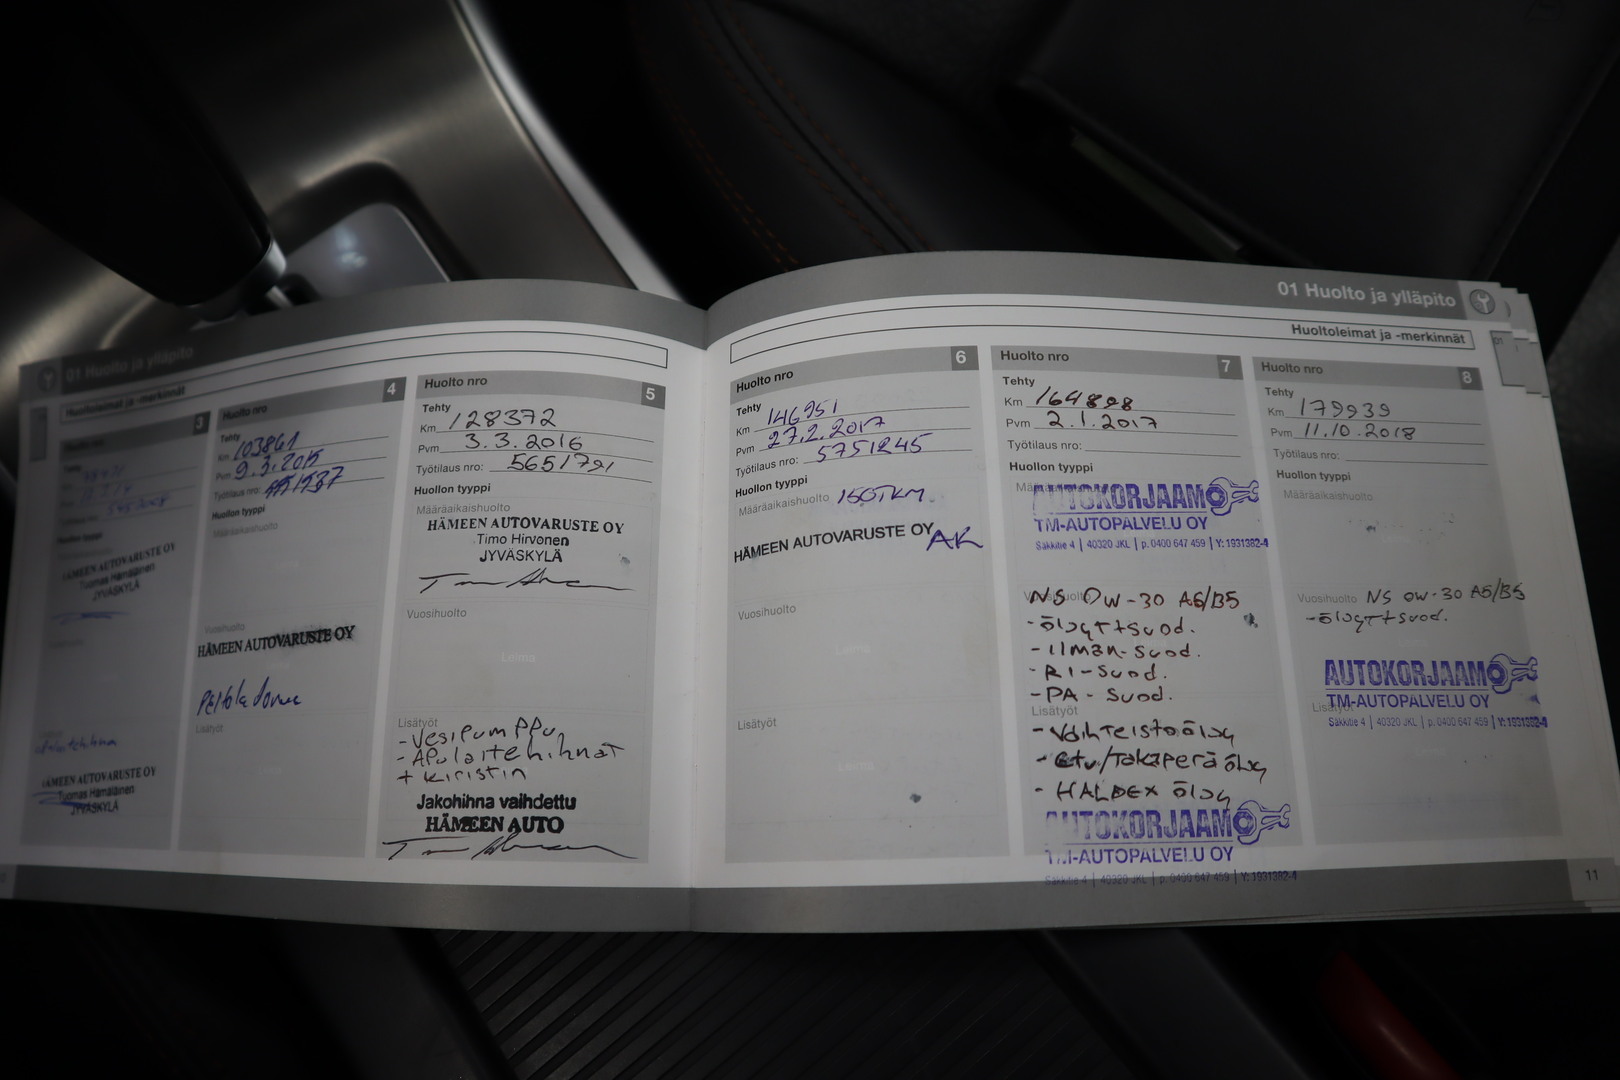 01 Huolto ja ylläpito
Huoltoleimat ja -merkinnät
3
Huolto nro
Tehty
Huollon tyyppi
HÄMEEN AUTOVARUSTE OY
Tuomas Hämäläinen
JYVÄSKYLÄ
HÄMEEN AUTOVARUSTE OY
Tuomas Hämäläinen
JYVÄSKYLÄ
Huolto nro 4
Tehty
Km 103861
Pvm 9.3.2015
Työtilaus nro:
Huollon tyyppi
Määräaikaishuolto
Vuosihuolto
HÄMEEN AUTOVARUSTE OY
Lisätyöt
Huolto nro 5
Tehty
Km 128372
Pvm 3.3.2016
Työtilaus nro: 5651791
Huollon tyyppi
Määräaikaishuolto
HÄMEEN AUTOVARUSTE OY
Timo Hirvonen
JYVÄSKYLÄ
Vuosihuolto
Leima
Lisätyöt
- Vesipumppu,
- Apulaitehihnat
+ kiristin
Jakohihna vaihdettu
HÄMEEN AUTO
01 Huolto ja ylläpito
Huoltoleimat ja -merkinnät
01
Huolto nro 6
Tehty
Km 146951
Pvm 27.2.2017
Työtilaus nro: 5751245
Huollon tyyppi
Määräaikaishuolto 150TKM
HÄMEEN AUTOVARUSTE OY AK
Vuosihuolto
Leima
Lisätyöt
Leima
Huolto nro 7
Tehty
Km 164898
Pvm 2.1.2017
Työtilaus nro:
Huollon tyyppi
AUTOKORJAAMO
TM-AUTOPALVELU OY
Säkkitie 4 | 40320 JKL | p. 0400 647 459 | Y: 1931382-4
Vuosihuolto
NS 0W-30 A5/B5
- öljyt+suod.
- ilman-suod.
- RI-suod.
- PA-suod.
Lisätyöt
- Vaihteistoöljy
- etu/Takaperä öljy
- HALDEX öljy
AUTOKORJAAMO
TM-AUTOPALVELU OY
Säkkitie 4 | 40320 JKL | p. 0400 647 459 | Y: 1931382-4
Huolto nro 8
Tehty
Km 179939
Pvm 11.10.2018
Työtilaus nro:
Huollon tyyppi
Määräaikaishuolto
Vuosihuolto NS 0W-30 A5/B5
- öljyt+suod.
AUTOKORJAAMO
TM-AUTOPALVELU OY
Lisätyöt
Säkkitie 4 | 40320 JKL | p. 0400 647 459 | Y: 1931382-4
11